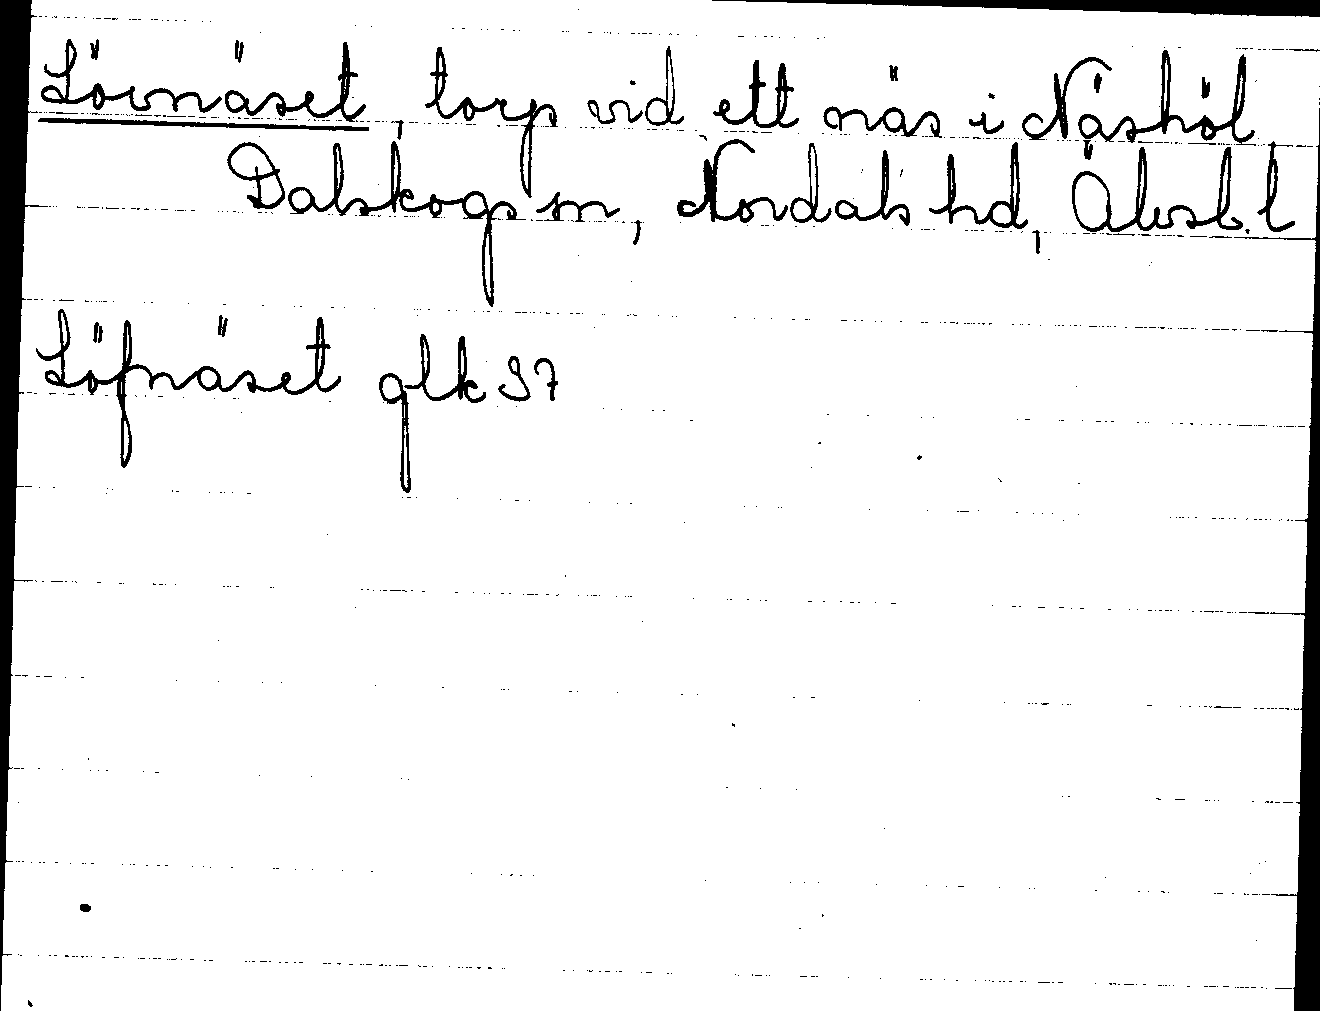 Lövnäset, torp vid ett näs i Näshöl
Dalskogs sn, Nordals hd, Älvsb. l
Löfnäset glk 37